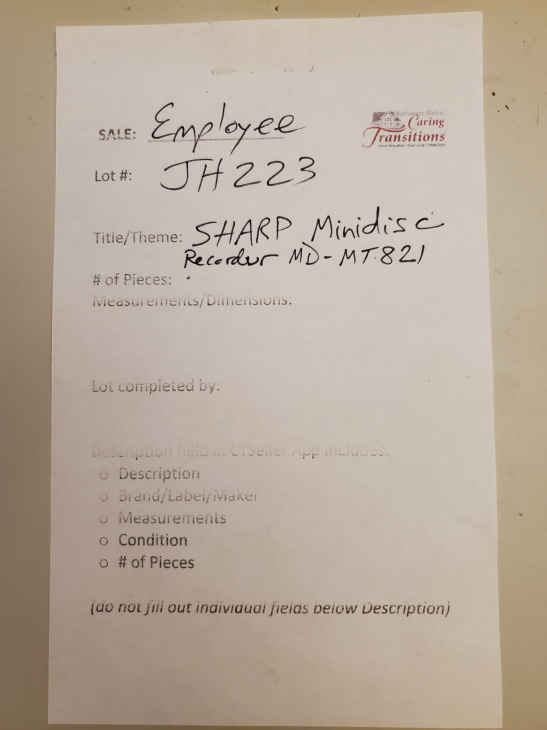 SALE: Employee
Caring
Transitions
Lot #: JH223
Title/Theme: SHARP Minidisc
Recorder MD-MT821
# of Pieces:
Measurements/Dimensions:
Lot completed by:
Description field in CTSeller App includes:
o Description
o Brand/Label/Maker
o Measurements
o Condition
o # of Pieces
(do not fill out individual fields below Description)